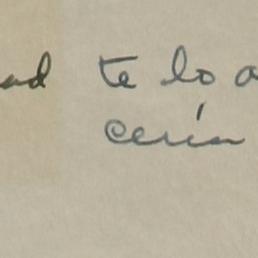 ad te lo a
cerín